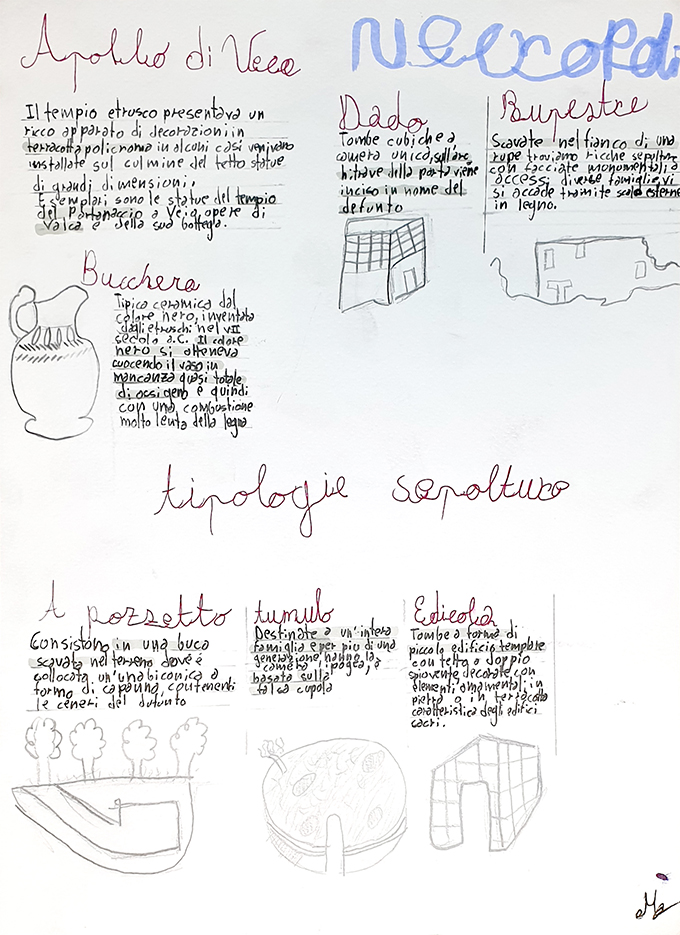 Apollo di Veio
Il tempio etrusco presentava un
ricco apparato di decorazioni in
terracotta policroma in alcuni casi venivano
installate sul culmine del tetto statue
di grandi dimensioni.
Esemplari sono le statue del tempio
del Portonaccio a Veio, opere di
Valca e della sua bottega.
Necropoli
Dado
Tombe cubiche a
camera unica, sull'arc
hitrave della porta viene
inciso in nome del
defunto
Rupestre
Scavate nel fianco di una
rupe troviamo ricche sepolture
con facciate monumentali, a
access; diverse famiglie, vi
si accade tramite scale esterne
in legno.
Bucchero
Tipica ceramica dal
colore nero, inventata
dagli etruschi nel VII
secolo a.C. Il colore
nero si otteneva
cuocendo il vaso in
mancanza quasi totale
di ossigeno e quindi
con una combustione
molto lenta della legna
tipologie sepolture
A pozzetto
Consistono in una buca
scavata nel terreno dove è
collocata un'una biconica a
formo di capanna, contenenti
le ceneri del defunto
tumulo
Destinate a un'intera
famiglia e per piu di una
generazione, hanno la
camera ipogea, è
basata sulla
falsa cupola
Edicola
Tombe a forma di
piccolo edificio templare
con tetto a doppio
spiovente decorate con
elementi ornamentali in
pietra o in terracotta
caratteristica degli edifici
sacri.